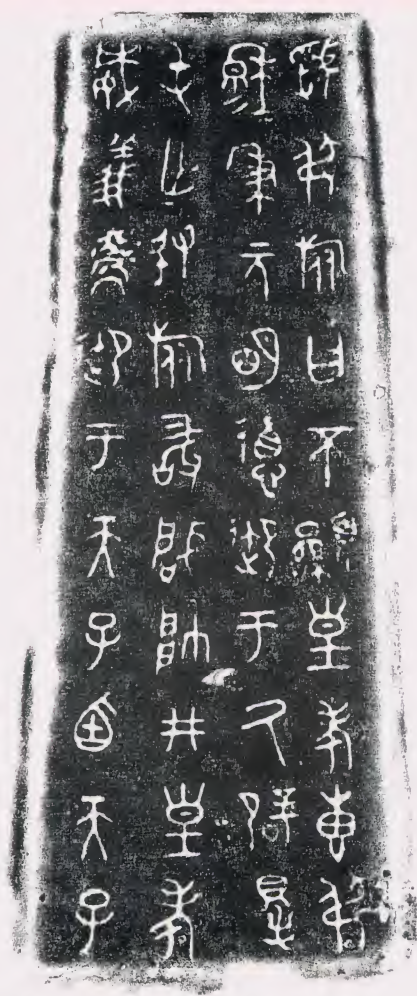 虢叔旅曰不顯皇考叀叔
穆秉元明德御于氒辟得
屯亡敃旅敢肇帥井皇考
威義御于天子廼天子